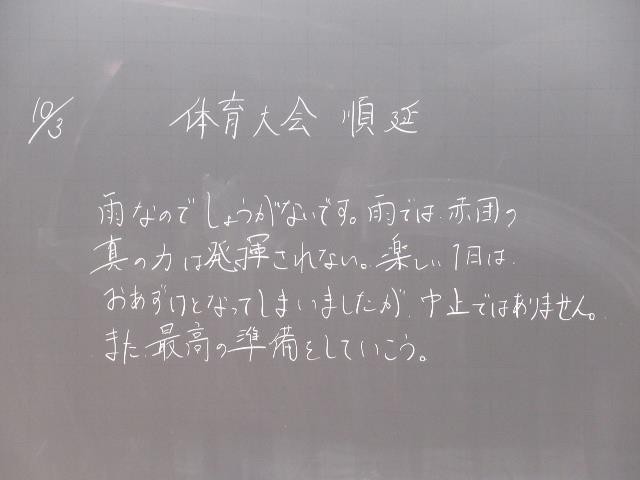 10/3
体育大会 順延
雨なのでしょうがないです。雨では、赤団の
真の力は発揮されない。楽しい1日は、
おあずけとなってしまいましたが、中止ではありません。
また、最高の準備をしていこう。